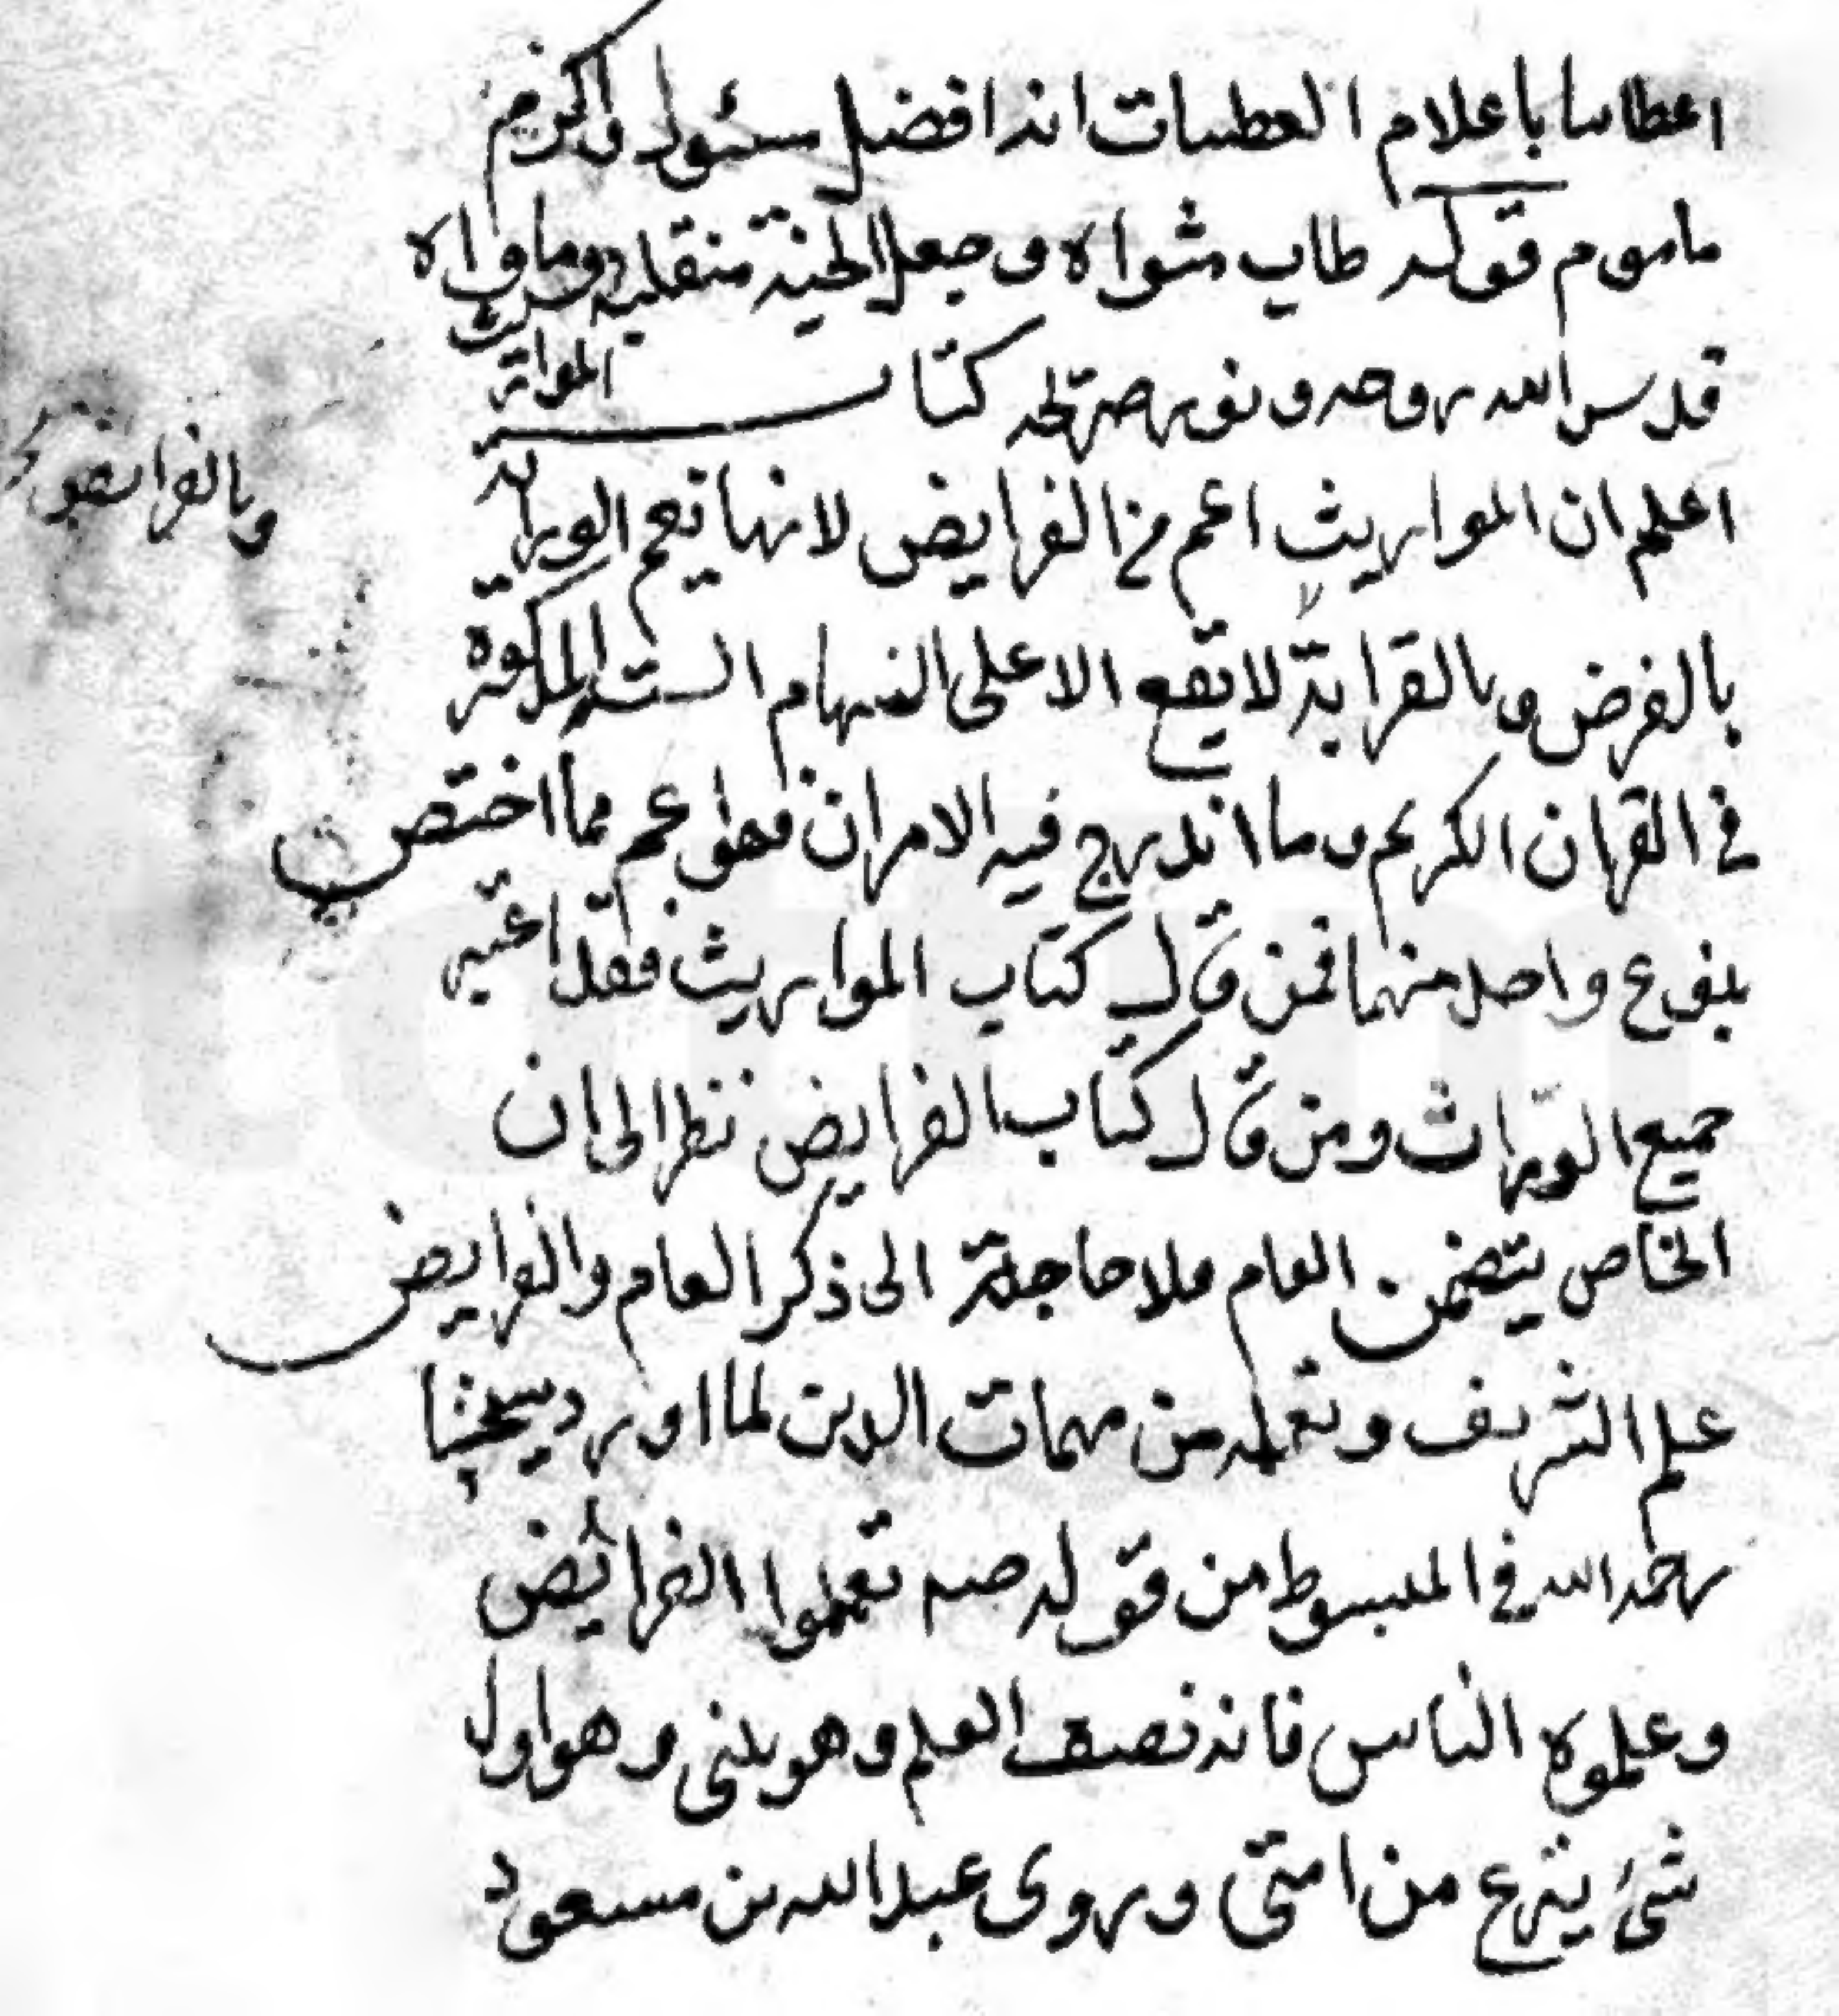 اعطانا باعلام العطيات انه افضل سئول واكرم
ماموم قوله طاب مثواه وجعل الجنة منقلبه وماواه
قدس الله روحه ونور ضريحه كتاب المواريث
اعلم ان المواريث اعم من الفرايض لانها تعم الوراثة
بالفرض وبالقرابة لا يقع الا على السهام الستة المذكورة
وبالفرايض
في القران الكريم وما اندرج فيه الامران فهو اعم مما اختص
بنوع واحد منهما فمن قال كتاب المواريث فقد اعتبر
جميع الوراث ومن قال كتاب الفرايض نظر الى ان
الخاص يتضمن العام فلا حاجة الى ذكر العام والفرايض
علم الشريف وتعلمه من مهمات الدين لما اورد شيخنا
رحمه الله في المبسوط من قوله صه تعلموا الفرائض
وعلموه الناس فانه نصف العلم وهو ينسى وهو اول
شئ ينزع من امتى وروى عبد الله بن مسعود